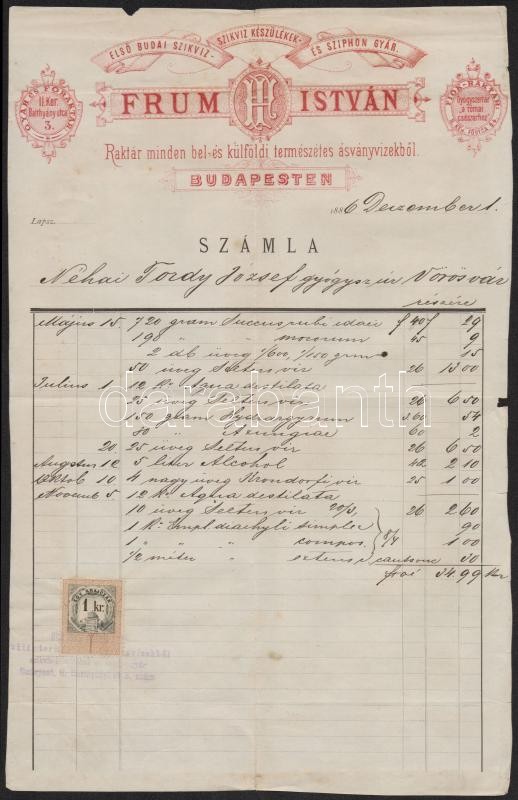 ELSŐ BUDAI SZIKVIZ- SZIKVIZ KÉSZÜLÉKEK- ÉS SZIPHON GYÁR.
GYÁR ÉS FŐRAKTÁR
II. Ker.
Batthyány utca
3.
FRUM ISTVÁN
FIÓK-RAKTÁR
Gyógyszertár
"a római
császárhoz"
Raktár minden bel-és külföldi természetes ásványvizekből.
BUDAPESTEN
1886 Dezember 1.
Lapsz.
SZÁMLA
Néhai Tordy József gyógyszer Vörösvár
részére
Május 15. 720 gram Succus rubi idaei f 40 f 29
190 " " mororum 45 9
2 db üveg 15
50 üveg Selters viz 26 13 00
Julius 1 12 Kº Aqua destilata
25 üveg Selters viz 26 6 50
150 gram Hydrargyrum 3.60 54
30 " Axungiae 60 2
20. 25 üveg Selters viz 26 6 50
Augstus 10 5 liter Alcohol 42 2 10
Oktob 10 4 nagy üveg Krondorfi viz 25 1 00
Novemb 5 12 Kº Aqua destilata
10 üveg Selters viz 26 2 60
1 Kº Empl diachyli simplex 90
1 " " " compos. 1 00
1/2 méter 30
34.99 kr
EGY KRAJCZÁR
1 kr.
darabanth